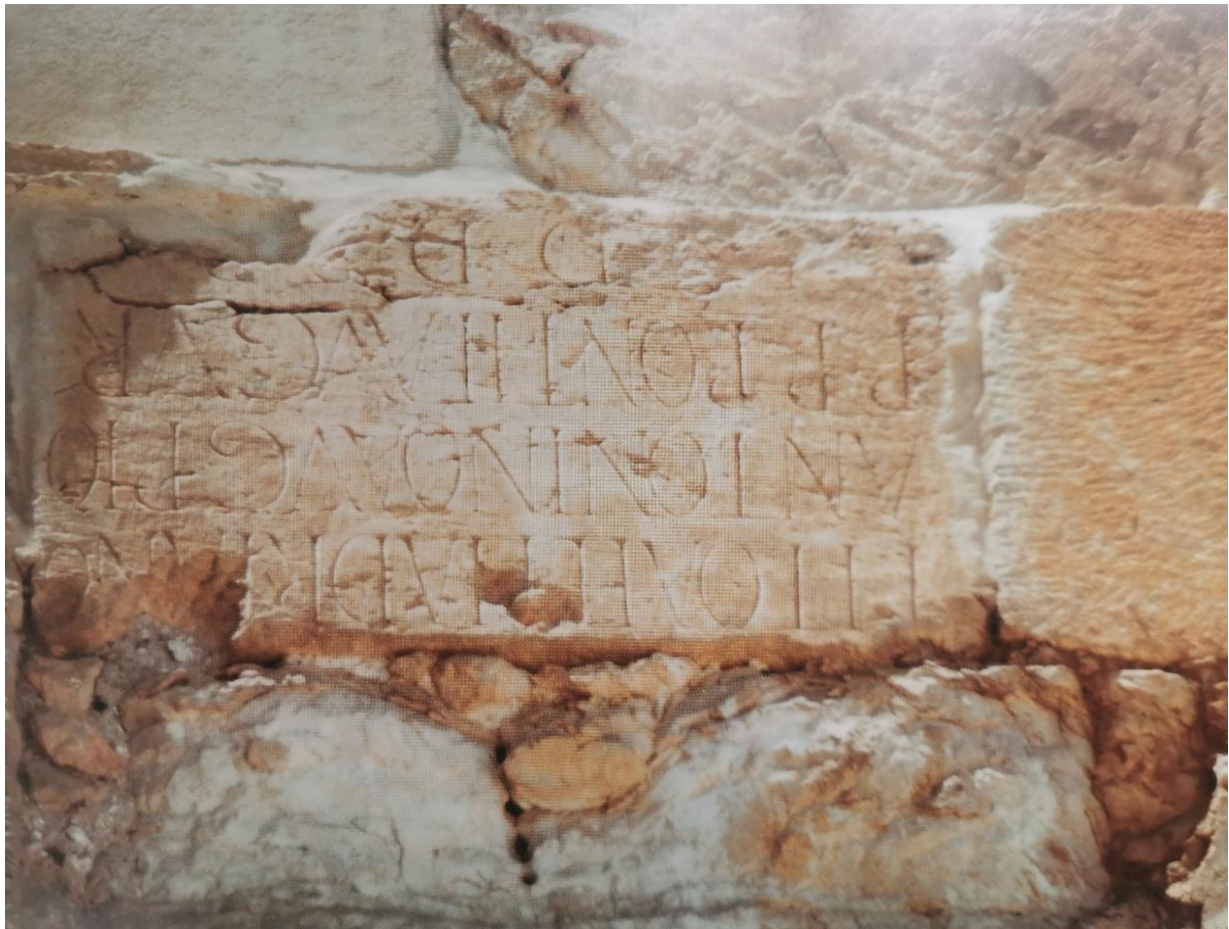 TITO AEL HADRIANO
ANTONINO AVG PIO
P P PONTIF AVGVR
D D